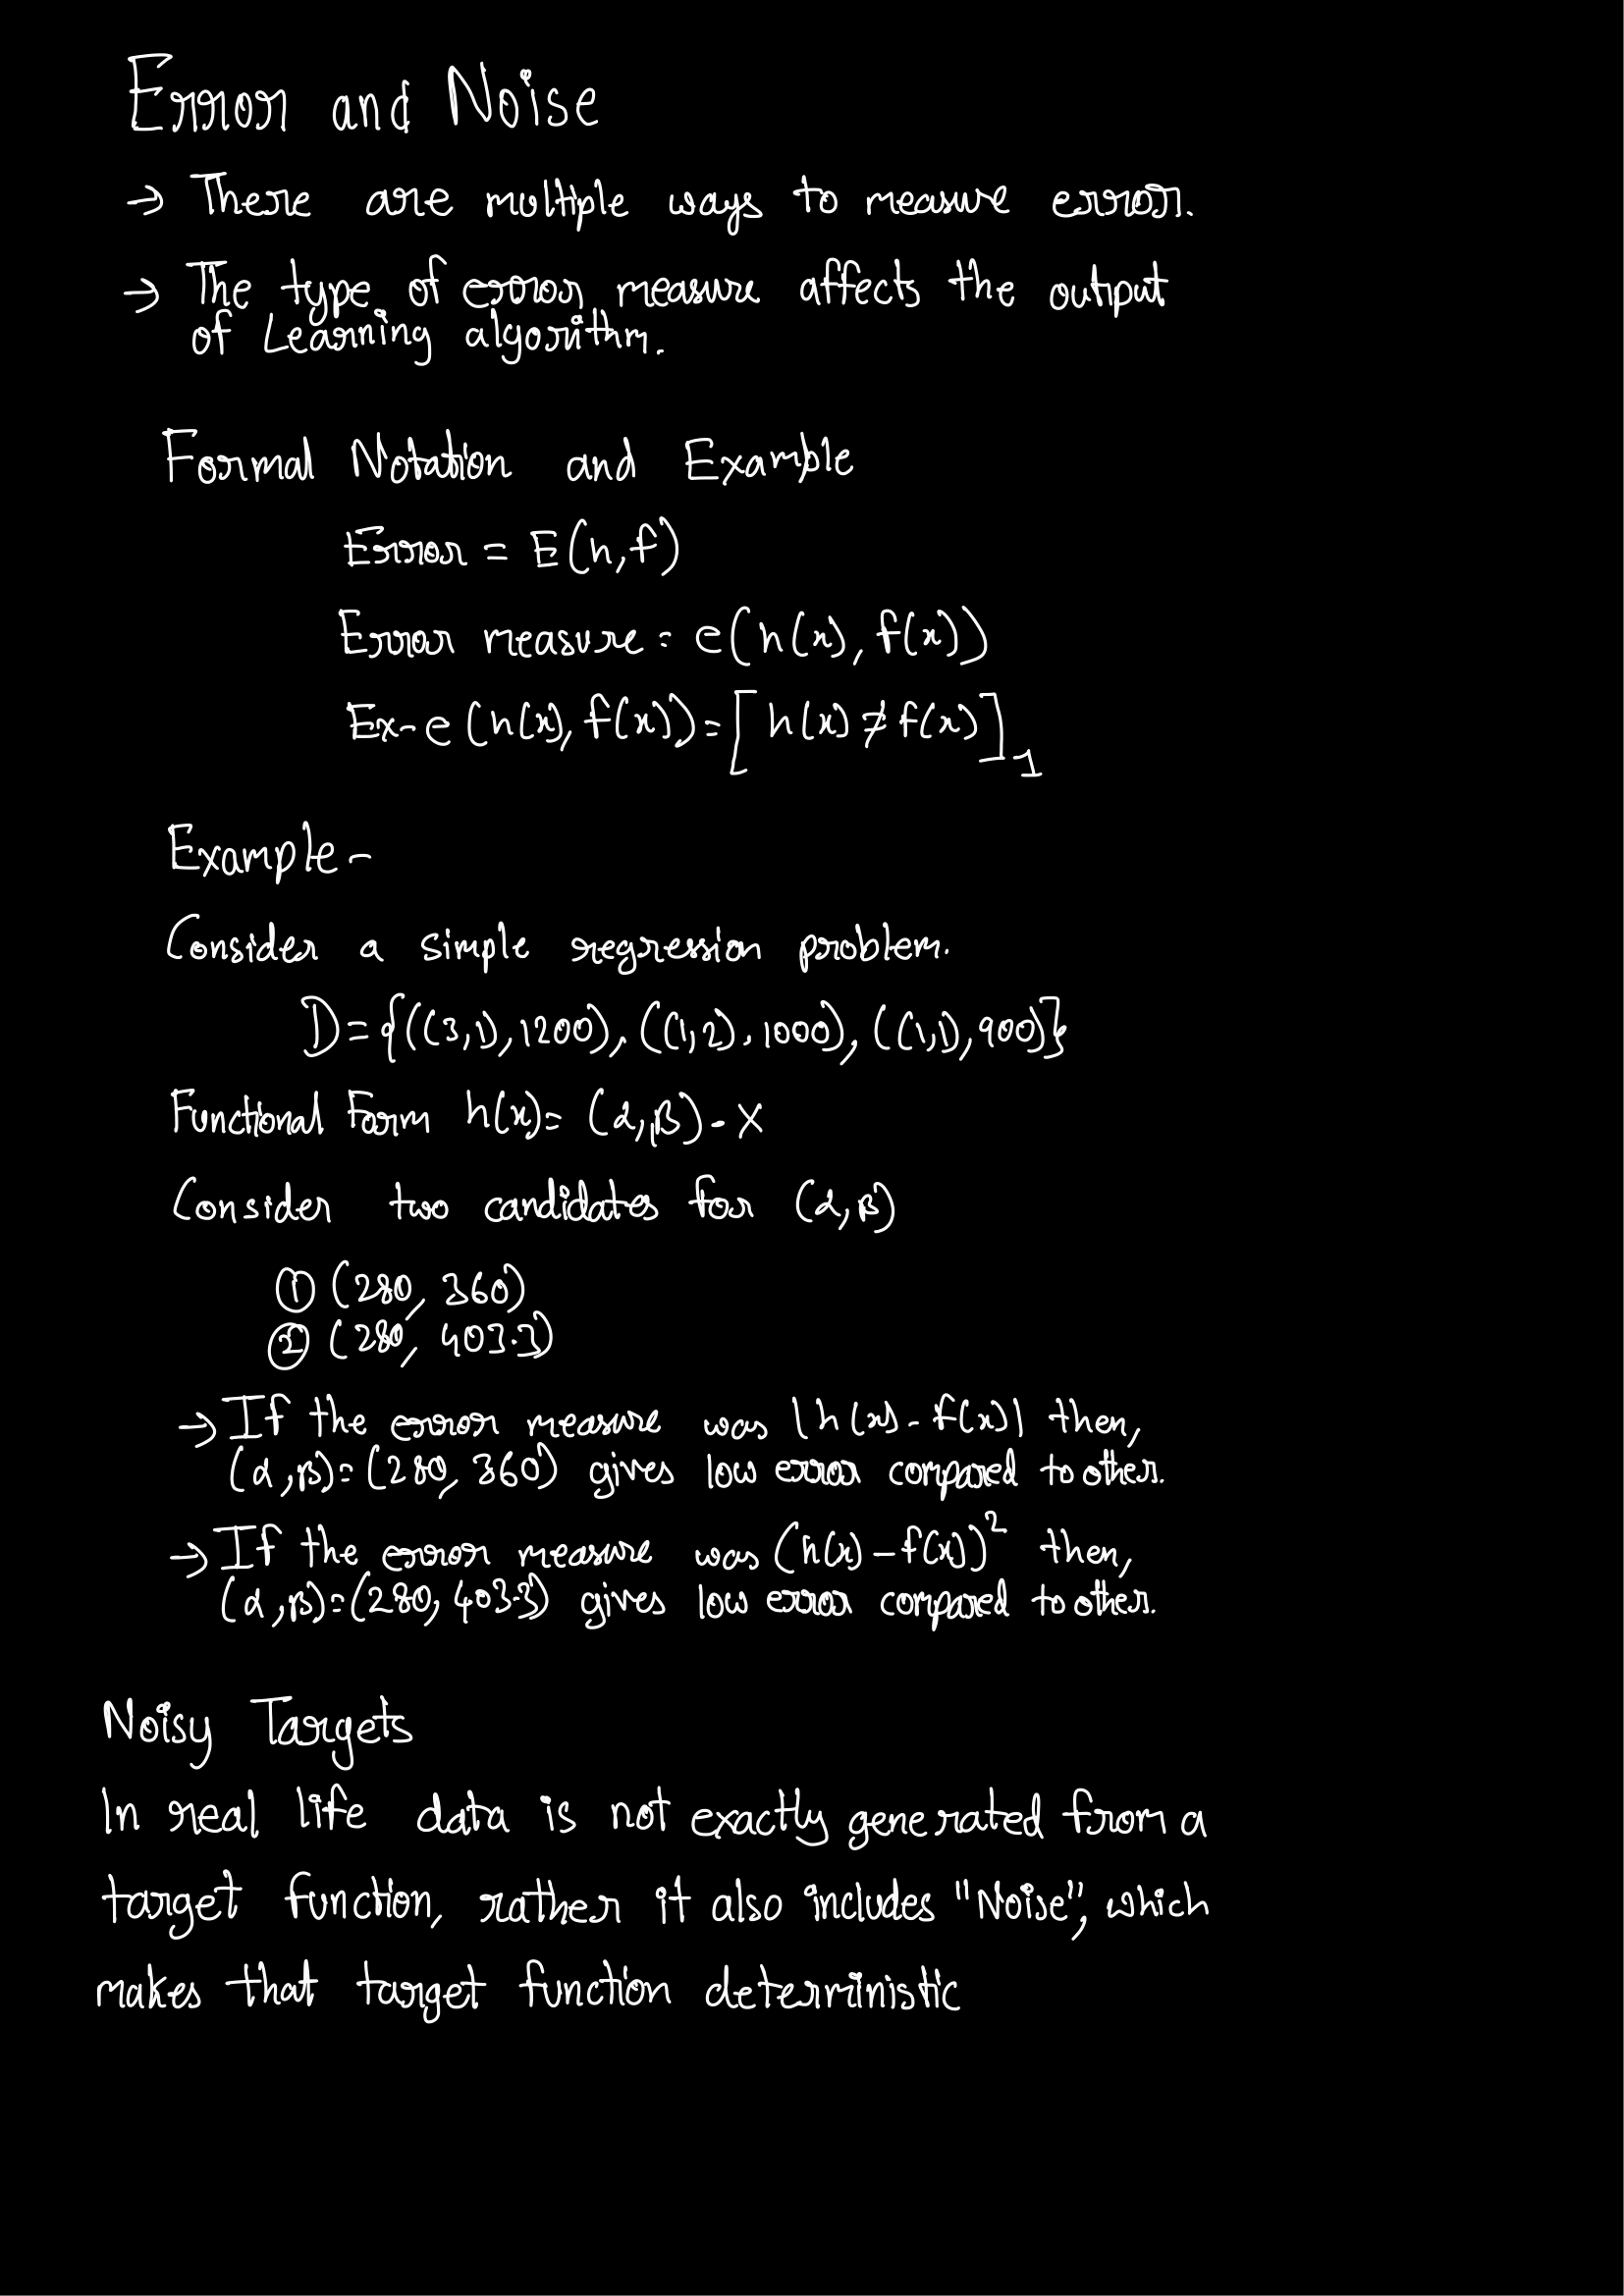 Error and Noise
→ There are multiple ways to measure error.
→ The type of error measure affects the output
of Learning algorithm.
Formal Notation and Example
Error = E(h,f)
Error measure = e(h(x), f(x))
Ex- e(h(x), f(x)) = [h(x) ≠ f(x)]₁
Example -
Consider a simple regression problem.
D = {((3,1), 1200), ((1,2), 1000), ((1,1), 900)}
Functional Form h(x) = (α, β) · X
Consider two candidates for (α, β)
① (280, 360)
② (280, 403.3)
→ If the error measure was |h(x) - f(x)| then,
(α, β) = (280, 360) gives low error compared to other.
→ If the error measure was (h(x) - f(x))² then,
(α, β) = (280, 403.3) gives low error compared to other.
Noisy Targets
In real life data is not exactly generated from a
target function, rather it also includes "Noise", which
makes that target function deterministic